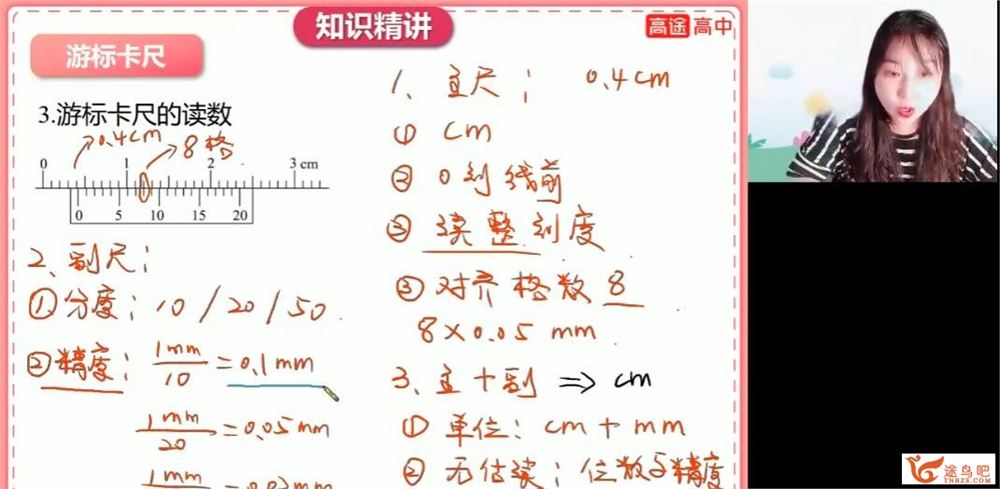 知识精讲
高途高中
游标卡尺
3.游标卡尺的读数
0.4cm
8格
0 1 2 3 cm
0 5 10 15 20
2、副尺：
①分度：10/20/50
②精度：1mm/10=0.1mm
1mm/20=0.05mm
1、主尺； 0.4cm
① cm
② 0刻线前
③ 读整刻度
③ 对齐格数 8
8×0.05 mm
3、主+副 ⇒ cm
① 单位：cm+mm
② 无估读；位数与精度
途鸟吧
TNBZS.COM